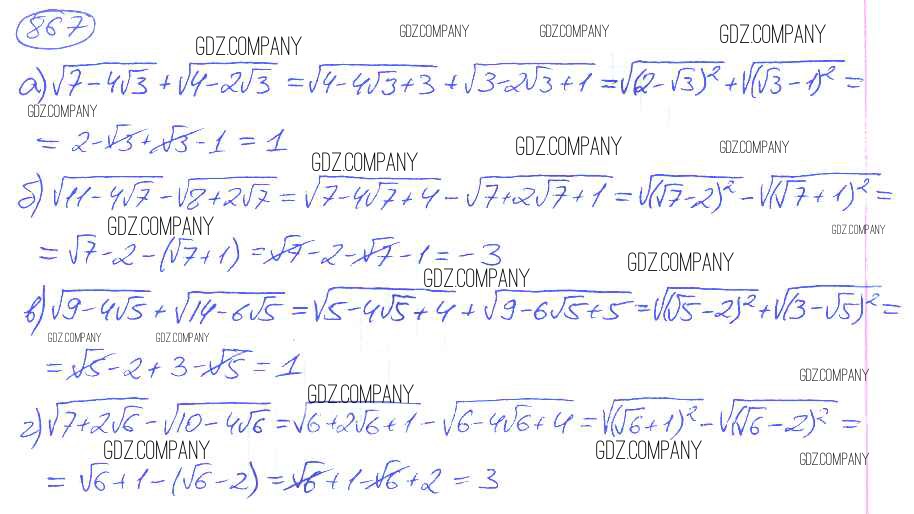 867
GDZ.COMPANY GDZ.COMPANY GDZ.COMPANY GDZ.COMPANY
а) √(7-4√3) + √(4-2√3) = √(4-4√3+3) + √(3-2√3+1) = √((2-√3)²) + √((√3-1)²) =
GDZ.COMPANY
= 2-√3+√3-1 = 1
GDZ.COMPANY GDZ.COMPANY GDZ.COMPANY
б) √(11-4√7) - √(8+2√7) = √(7-4√7+4) - √(7+2√7+1) = √((√7-2)²) - √((√7+1)²) =
GDZ.COMPANY GDZ.COMPANY
= √7-2-(√7+1) = √7-2-√7-1 = -3
GDZ.COMPANY GDZ.COMPANY
в) √(9-4√5) + √(14-6√5) = √(5-4√5+4) + √(9-6√5+5) = √((√5-2)²) + √((3-√5)²) =
GDZ.COMPANY GDZ.COMPANY
= √5-2+3-√5 = 1
GDZ.COMPANY GDZ.COMPANY
г) √(7+2√6) - √(10-4√6) = √(6+2√6+1) - √(6-4√6+4) = √((√6+1)²) - √((√6-2)²) =
GDZ.COMPANY GDZ.COMPANY GDZ.COMPANY
= √6+1-(√6-2) = √6+1-√6+2 = 3